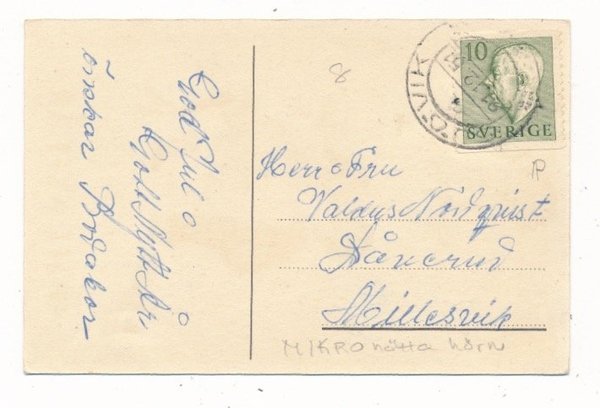 God Jul o
Gott Nytt År
önskar
8
10
SVERIGE
Herr o Fru
Valdus Nordqvist
Millesvik
MIKRO nötta hörn